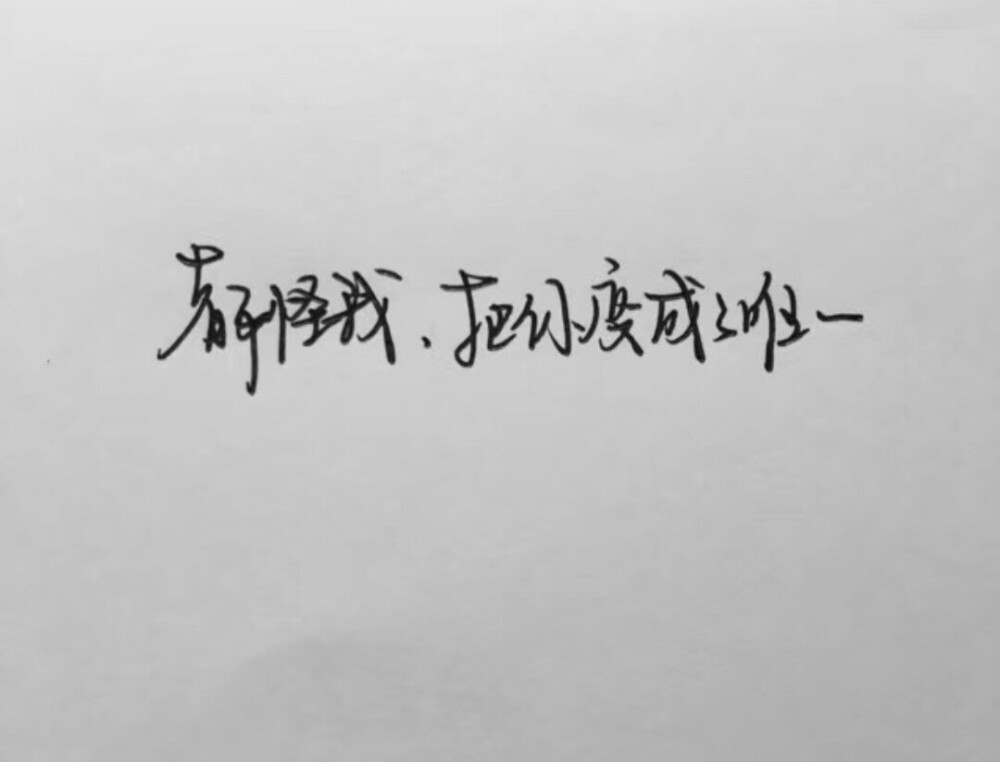 都怪我、把你变成了唯一